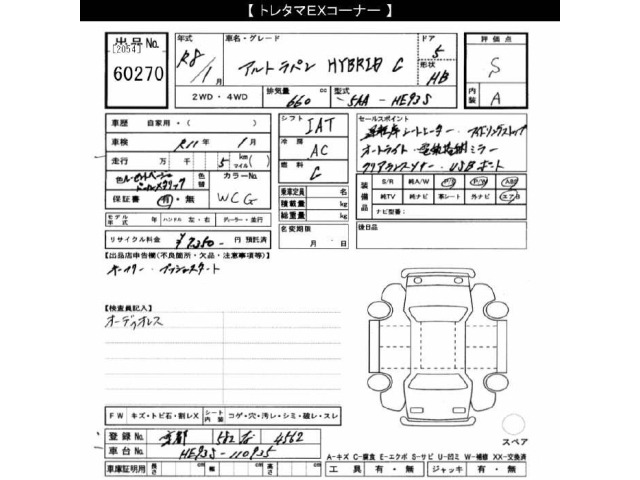 【 トレタマEXコーナー 】
出品No. [2054] 60270
年式 R8/1月
車名・グレード アルトラパン HYBRID G
ドア 5
形状 HB
評価点 S
内装 A
2WD・4WD
排気量 660 cc
型式 5AA-HE93S
車歴 自家用・( )
車検 R11年 1月
走行 万 千 5 km (マイル)
色 色替 カラーNo. WCG
保証書 有・無
モデル年式 年 ハンドル 左・右 ディーラー・並行
リサイクル料金 ¥ 円 預託済
シフト IAT
冷房 AC
燃料 G
乗車定員 名
積載量 kg
総重量 kg
名変期限 月 日
セールスポイント
運転席シートヒーター・アイドリングストップ
オートライト・電動格納ミラー
クリアランスソナー・USBポート
装備品 S/R 純A/W P/S P/W ABS
純TV 純ナビ 革シート 外ナビ エアB
ナビ型番( )
後日品
【出品店申告欄(不良箇所・欠品・注意事項等)】
キーフリー・プッシュスタート
【検査員記入】
オーディオレス
FW キズ・トビ石・割レX シート内装 コゲ・穴・汚レ・シミ・破レ・スレ
登録No. 京都 582 4562
車台No. HE93S-110935
車庫証明用 長さ cm 幅 cm 高さ cm
スペア
A-キズ C-腐食 E-エクボ S-サビ U-凹ミ W-補修 XX-交換済
工具 有・無 ジャッキ 有・無